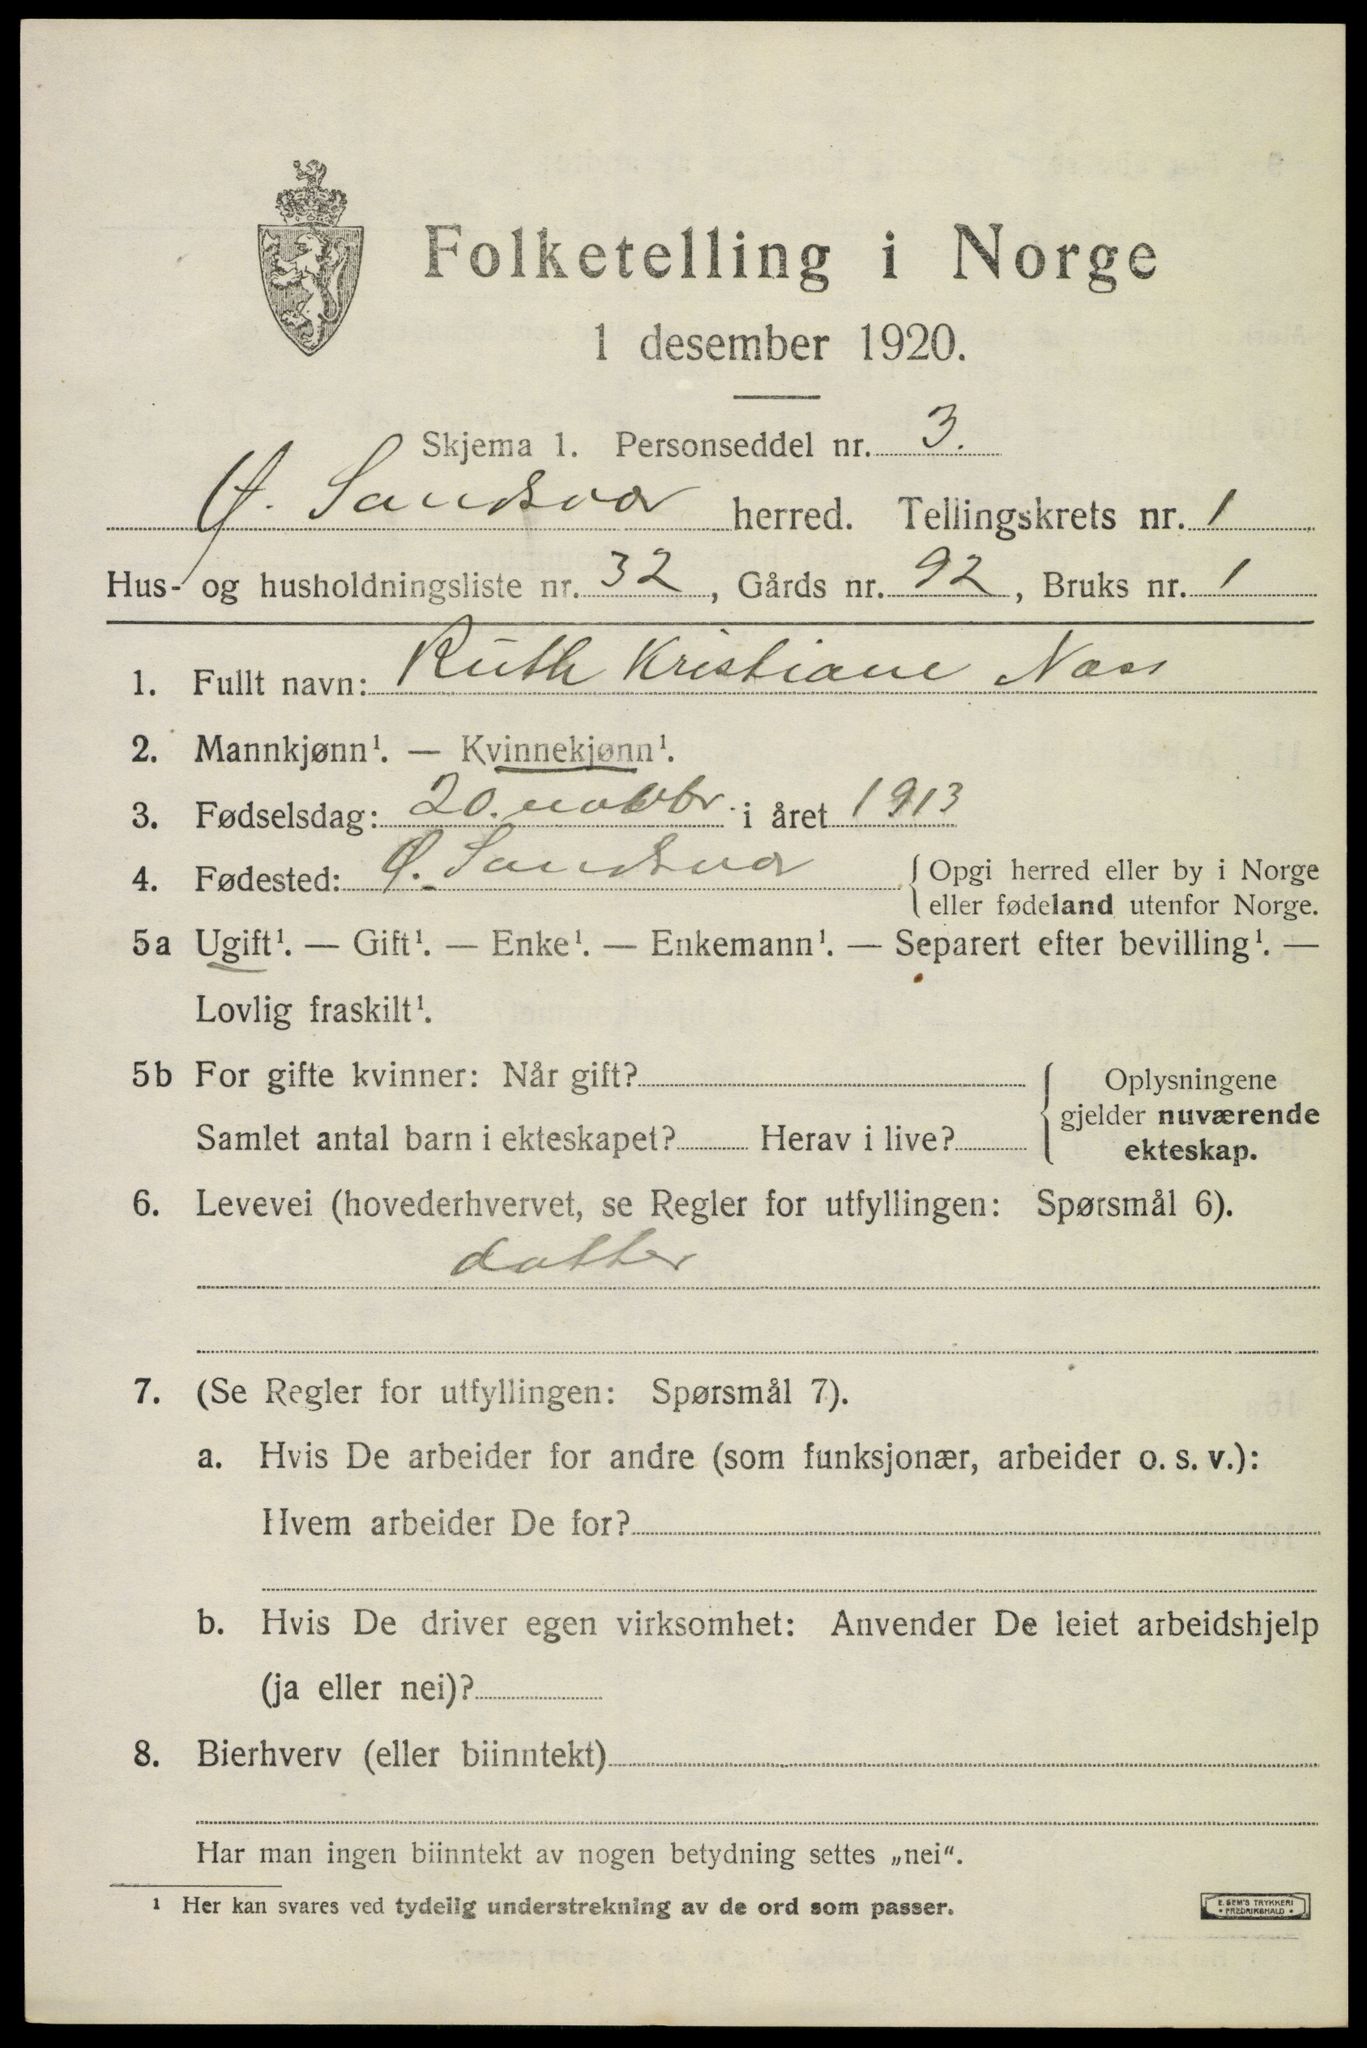 Folketelling i Norge
1 desember 1920.
Skjema 1. Personseddel nr. 3.
Ø. Sandsvær herred. Tellingskrets nr. 1
Hus- og husholdningsliste nr. 32, Gårds nr. 92, Bruks nr. 1
1. Fullt navn: Ruth Kristiane Næss
2. Mannkjønn¹. — Kvinnekjønn¹.
3. Fødselsdag: 20. novbr i året 1913
4. Fødested: Ø. Sandsvær {Opgi herred eller by i Norge
eller fødeland utenfor Norge.
5a Ugift¹. — Gift¹. — Enke¹. — Enkemann¹. — Separert efter bevilling¹. —
Lovlig fraskilt¹.
5b For gifte kvinner: Når gift?
Samlet antal barn i ekteskapet? Herav i live?
Oplysningene
gjelder nuværende
ekteskap.
6. Levevei (hovederhvervet, se Regler for utfyllingen: Spørsmål 6).
datter
7. (Se Regler for utfyllingen: Spørsmål 7).
a. Hvis De arbeider for andre (som funksjonær, arbeider o. s. v.):
Hvem arbeider De for?
b. Hvis De driver egen virksomhet: Anvender De leiet arbeidshjelp
(ja eller nei)?
8. Bierhverv (eller biinntekt)
Har man ingen biinntekt av nogen betydning settes „nei“.
¹ Her kan svares ved tydelig understrekning av de ord som passer.
E. SEM'S TRYKKERI
• FREDRIKSHALD •